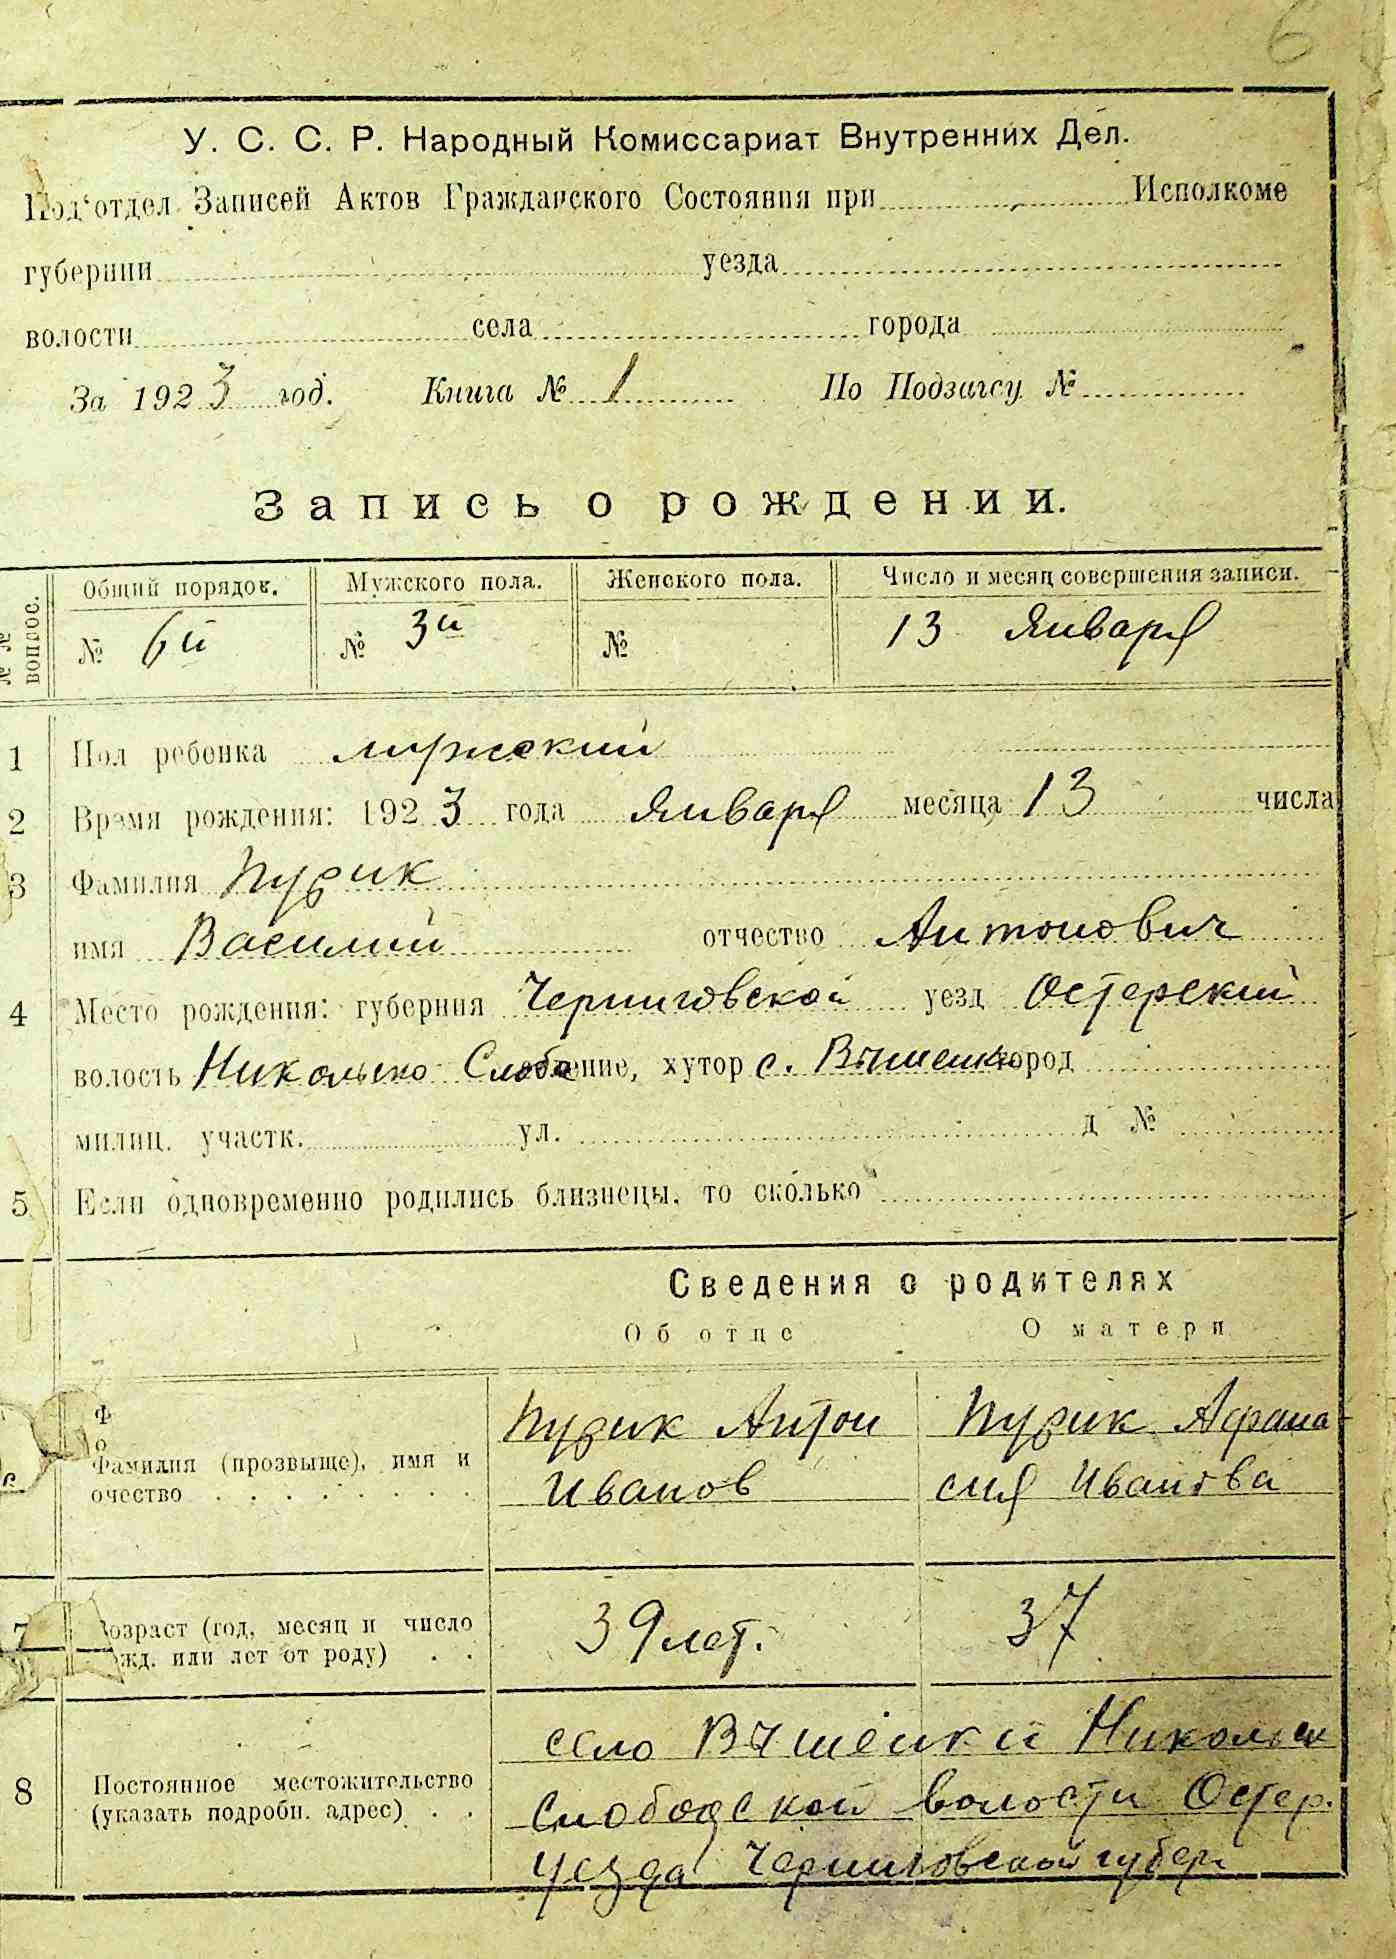 6
У. С. С. Р. Народный Комиссариат Внутренних Дел.
Под'отдел Записей Актов Гражданского Состояния при Исполкоме
губернии уезда
волости села города
За 1923 год. Книга № 1 По Подзагсу №
Запись о рождении.
№ № вопрос. Общий порядок. Мужского пола. Женского пола. Число и месяц совершения записи.
№ 6й № 3й № 13 Января
1 Пол ребенка мужский
2 Время рождения: 1923 года Января месяца 13 числа
3 Фамилия Пузик
имя Василий отчество Антонович
4 Место рождения: губерния Черниговской уезд Остерский
волость Никольско Слобо ение, хутор с. Вишенки ород
милиц. участк. ул. д №
5 Если одновременно родились близнецы, то сколько
Сведения о родителях
Об отце О матери
Ф
Фамилия (прозвыще), имя и Пузик Антон Пузик Афана
очество Иванов сия Иванова
7 возраст (год, месяц и число 39 лет. 37
жд. или лет от роду)
село Вишенки Никольск
8 Постоянное местожительство Слободской волости Остер.
(указать подробн. адрес) уезда Черниговской губер